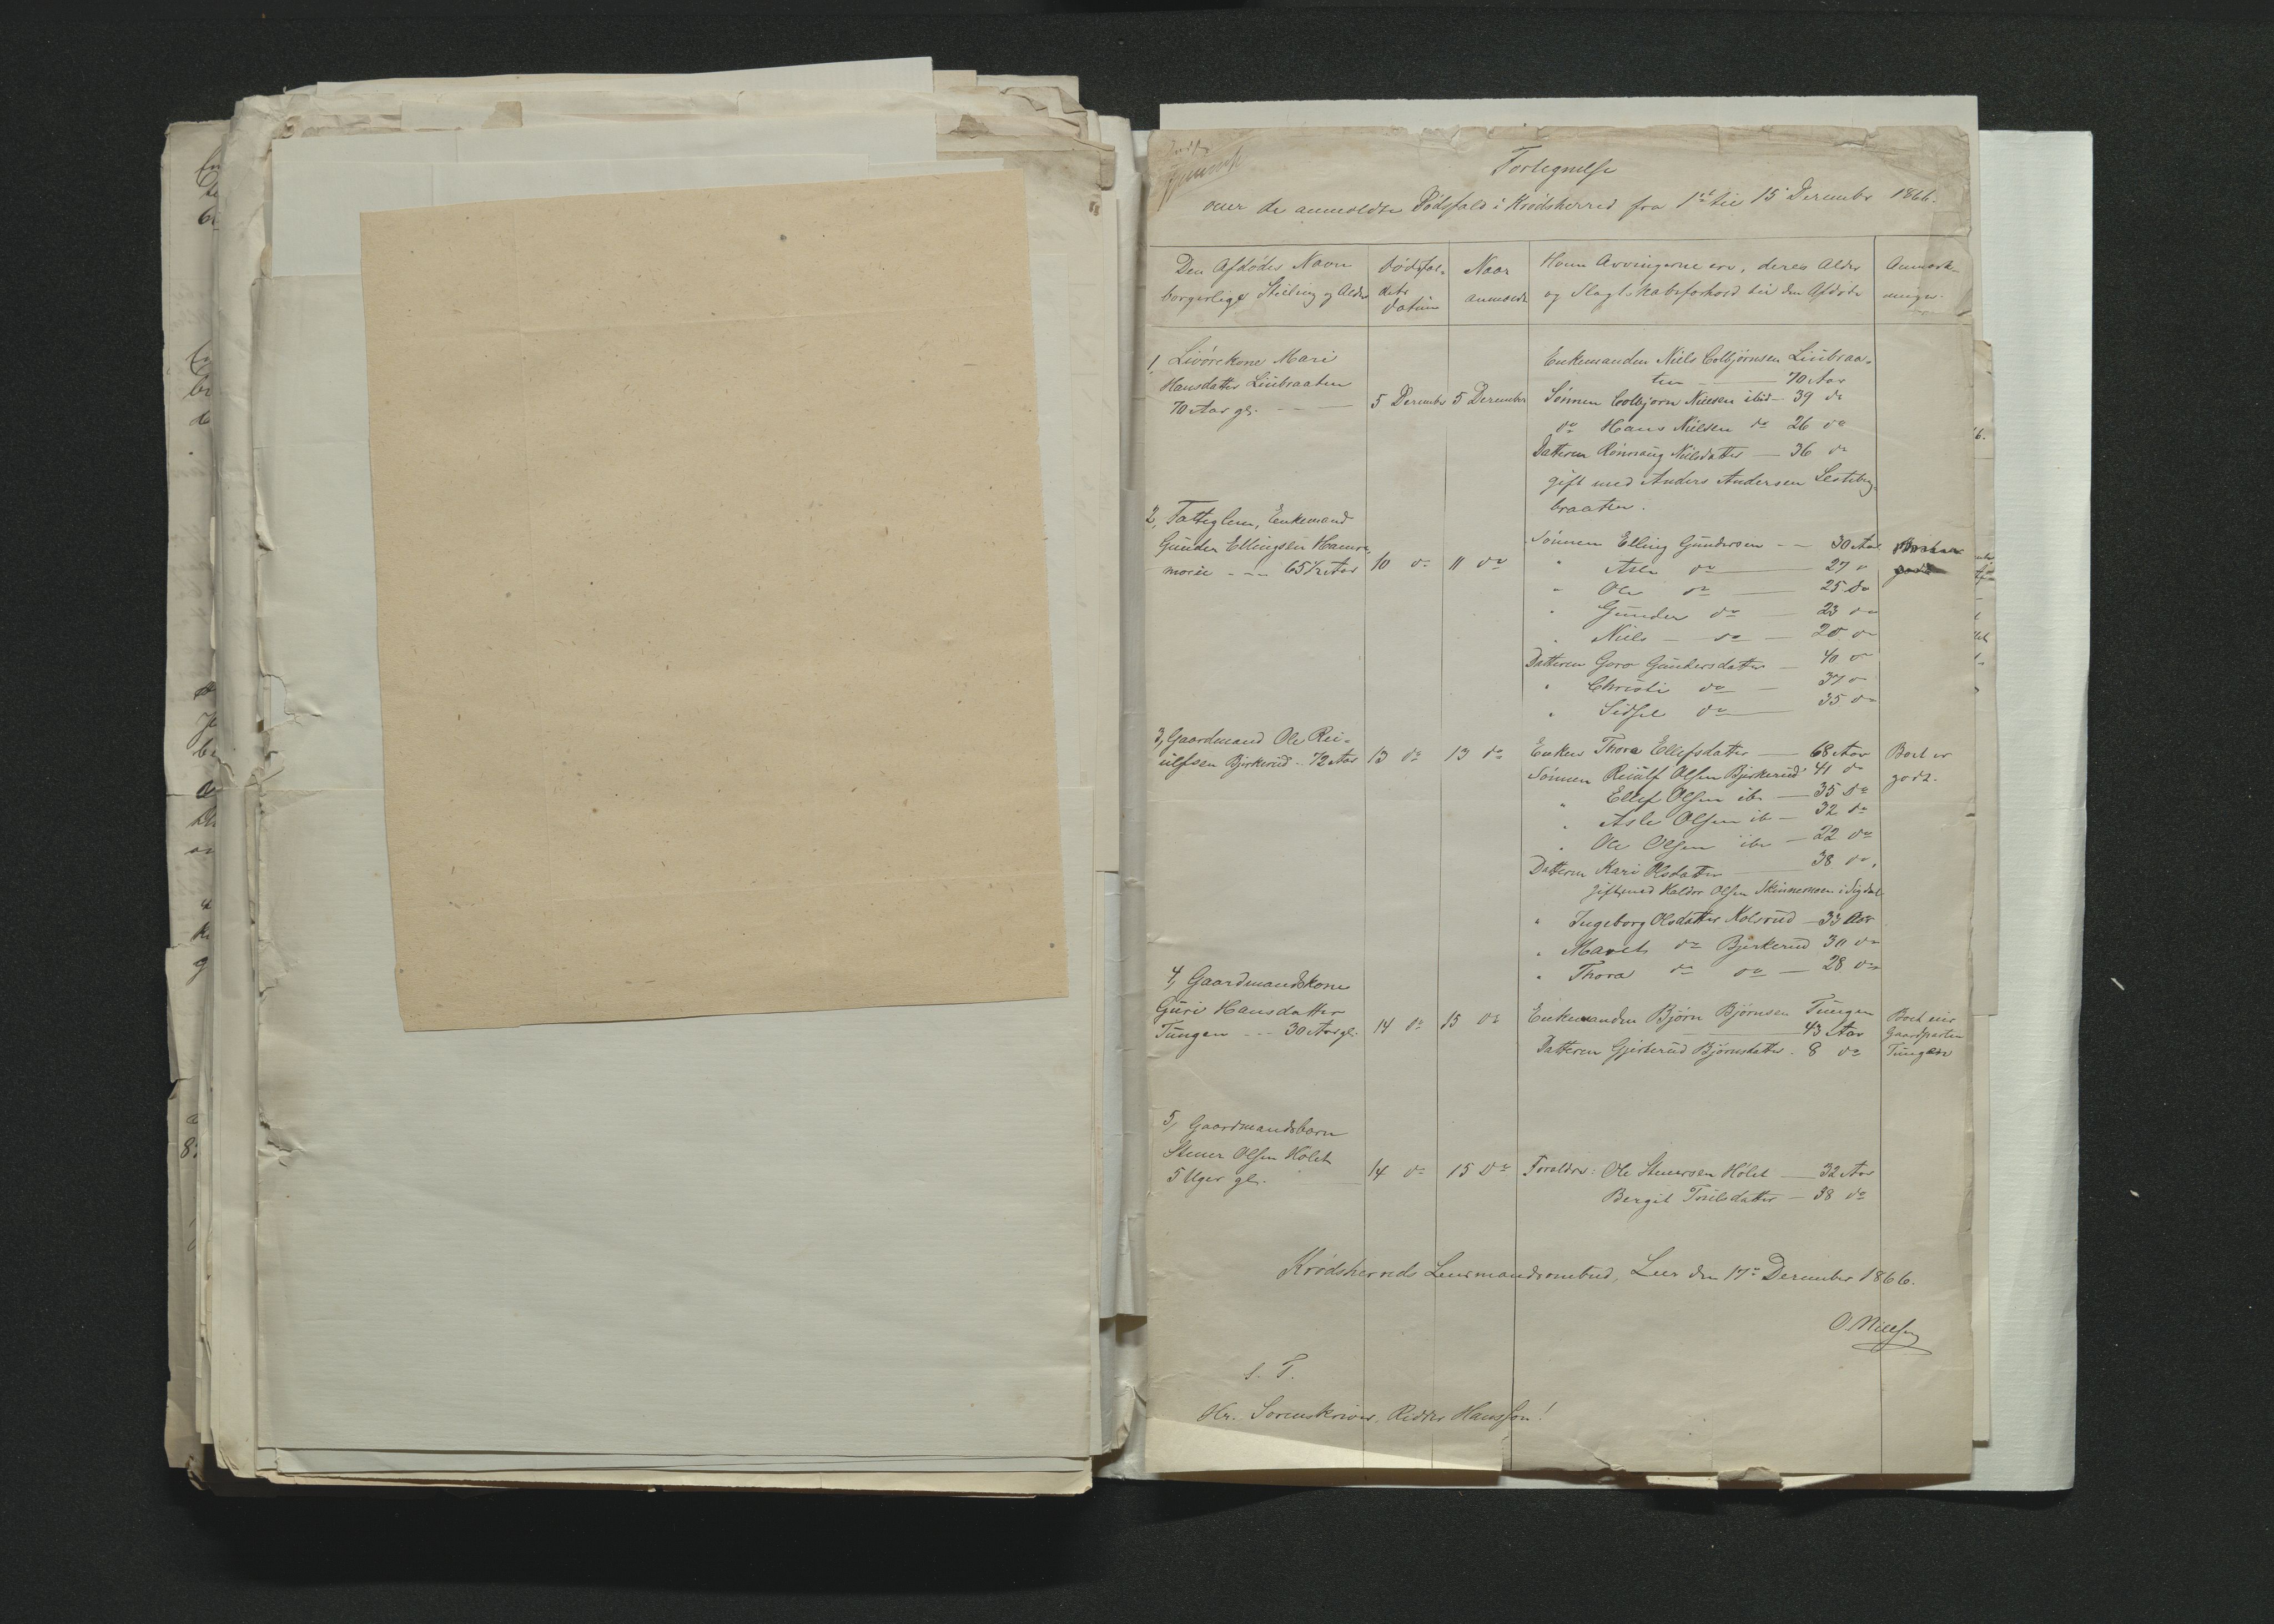 Fortegnelse
over de anmeldte Dødsfald i Krødsherred fra 1ste til 15 December 1866.
Den Afdødes Navn
borgerlige Stilling og Alder
Dødsfal-
dets
Datum
Naar
anmeldt
Hvem Arvingerne ere, deres Alder
og Slægtskabsforhold til den Afdøde
Anmærk-
ninger.
1, Livørekone Mari
Hansdatter Liubraaten
70 Aar gl.
5 December
5 December
Enkemanden Niels Colbjørnsen Liubraa-
ten 70 Aar
Sønnen Colbjørn Nielsen ibid 39 do
do Hans Nielsen do 26 do
Datteren Rønnaug Nielsdatter 36 do
gift med Anders Andersen
braaten.
2, Fattiglem, Enkemand
Gunder Ellingsen Hamre-
moen 65 1/2 Aar
10 do
11 do
Sønnen Elling Gundersen 30 Aar
" Asle do 27 "
" Ole do 25 do
" Gunder do 23 do
" Niels do 20 do
Datteren Goro Gundersdatter 40 do
" Christi do 37 do
" Sidsel do 35 do
3, Gaardmand Ole Rei-
ulfsen Bjerkerud 72 Aar
13 do
13 do
Enken Thora Ellefsdatter 68 Aar
Sønnen Reiulf Olsen Bjerkerud 41 do
" Ellef Olsen ibd 35 do
" Asle Olsen ib 32 do
" Ole Olsen ibd 22 do
Datteren Kari Olsdatter 38 do,
gift med Haldor Olsen Skinnemoen i Sigdal
" Ingeborg Olsdatter Kolsrud 33 Aar
" Marit do Bjerkerud 30 do
" Thora do do 28 do
Boet er
godt.
4, Gaardmandskone
Guri Hansdatter
Tungen 30 Aar gl.
14 do
15 do
Enkemanden Bjørn Bjørnsen Tungen
43 Aar
Datteren Gjerterud Bjørnsdatter 8 do
Boet eier
Gaardparten
Tungen
5, Gaardmandsbarn
Stener Olsen Hølet
5 Uger gl.
14 do
15 do
Forældre: Ole Stenersen Hølet 32 Aar
Bergit Truelsdatter 38 do
Krødsherreds Lensmandsombud, Leer den 17de December 1866.
O. Nielsen
S. T.
Hr. Sorenskriver, Ridder Hansson!